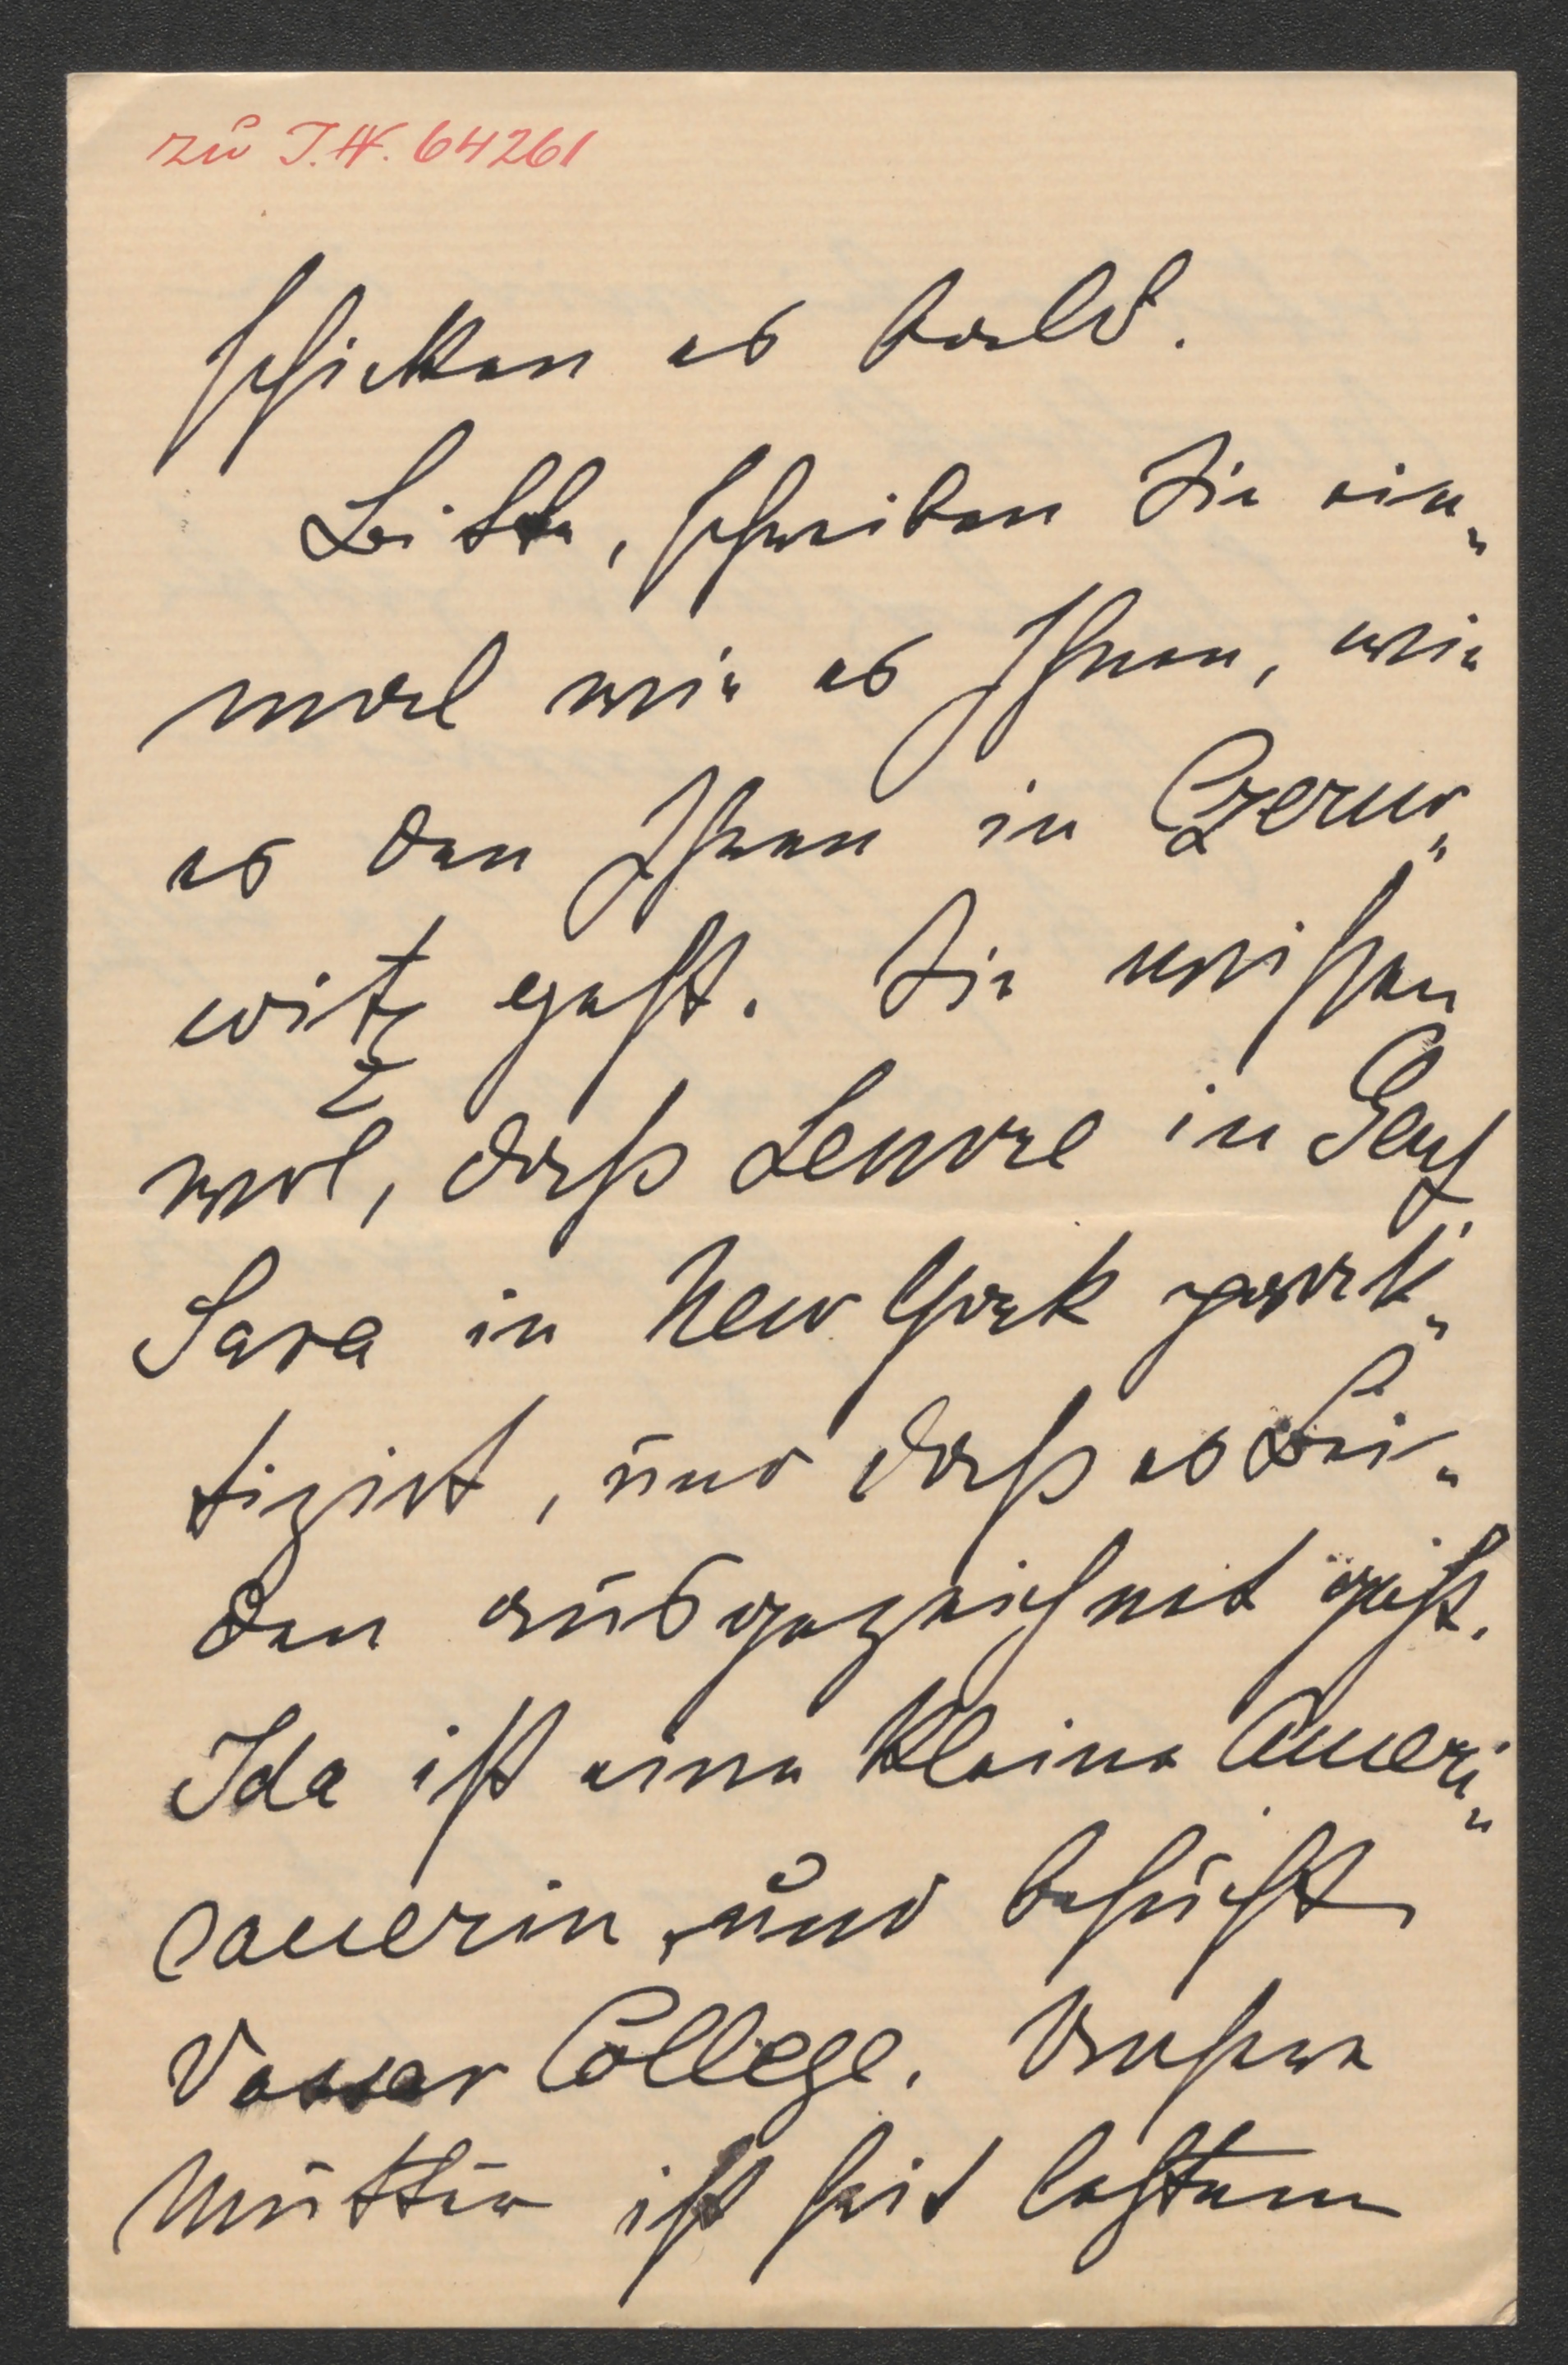 zu I.N. 64261
schicken es bald.
Bitte, schreiben Sie ein„
mal wie es Ihnen, wie
es den Ihren in Czerno„
witz geht. Sie wissen
wol, daß Lenore in Genf,
Sara in New York prak„
tizirt, und daß es Bei„
den ausgezeichnet geht.
Ida ist eine kleine Ameri„
canerin, und besucht
Vassar College. Unsere
Mutter ist seit letztem